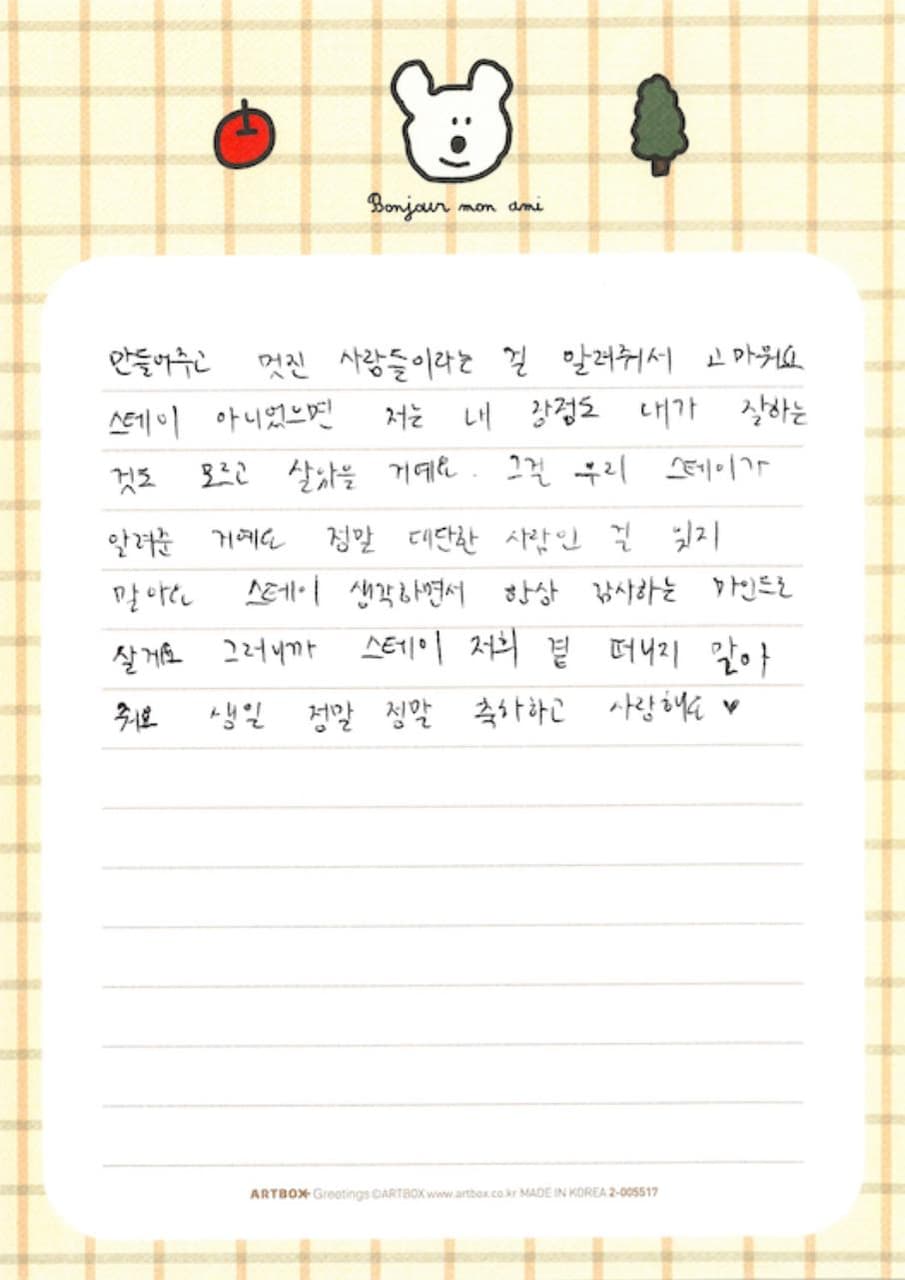 Bonjour mon ami
만들어주고 멋진 사람들이라는 걸 알려줘서 고마워요
스테이 아니었으면 저는 내 장점도 내가 잘하는
것도 모르고 살았을 거예요. 그걸 우리 스테이가
알려준 거예요 정말 대단한 사람인 걸 잊지
말아요 스테이 생각하면서 항상 감사하는 마인드로
살게요 그러니까 스테이 저희 곁 떠나지 말아
줘요 생일 정말 정말 축하하고 사랑해요 ♥
ARTBOX Greetings ©ARTBOX www.artbox.co.kr MADE IN KOREA 2-005517